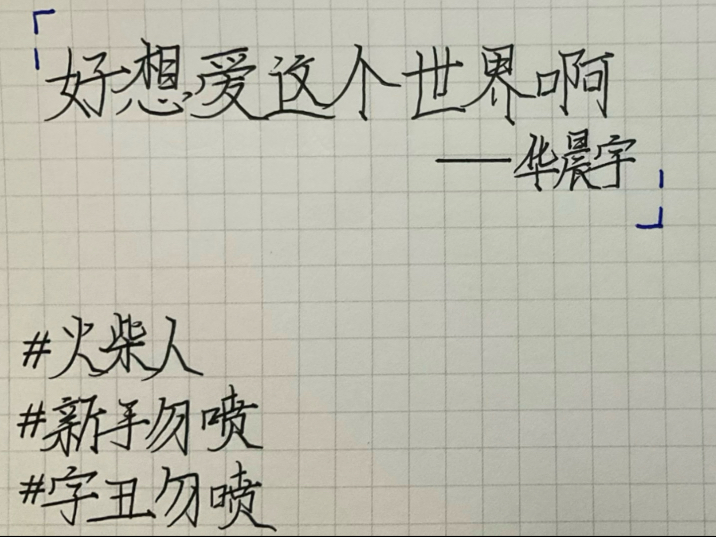 「好想爱这个世界啊
——华晨宇」
#火柴人
#新手勿喷
#字丑勿喷